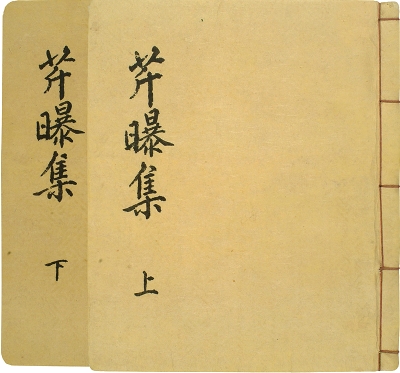 芹曝集
上
芹曝集
下